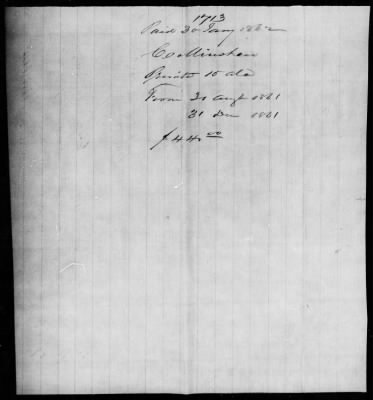 1713
Paid 30 Jany 1862
Co Minshen
Private 10 Ala
From 31 Augt 1861
31 Dec 1861
$44.00